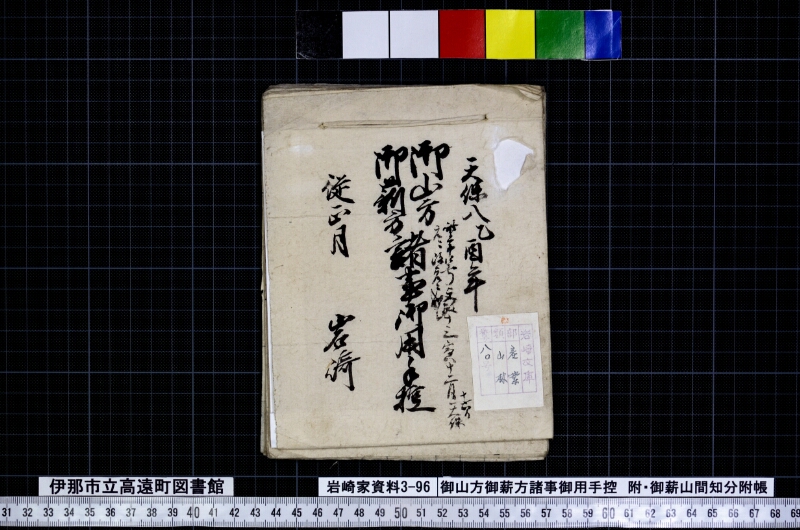 天保八乙酉年
御山方
御薪方
諸事御用手控
従正月
岩崎
岩崎文庫
部 産業
類 山林
八〇
伊那市立高遠町図書館
岩崎家資料3-96 御山方御薪方諸事御用手控 附・御薪山間知分附帳
31 32 33 34 35 36 37 38 39 40 41 42 43 44 45 46 47 48 49 50 51 52 53 54 55 56 57 58 59 60 61 62 63 64 65 66 67 68 69